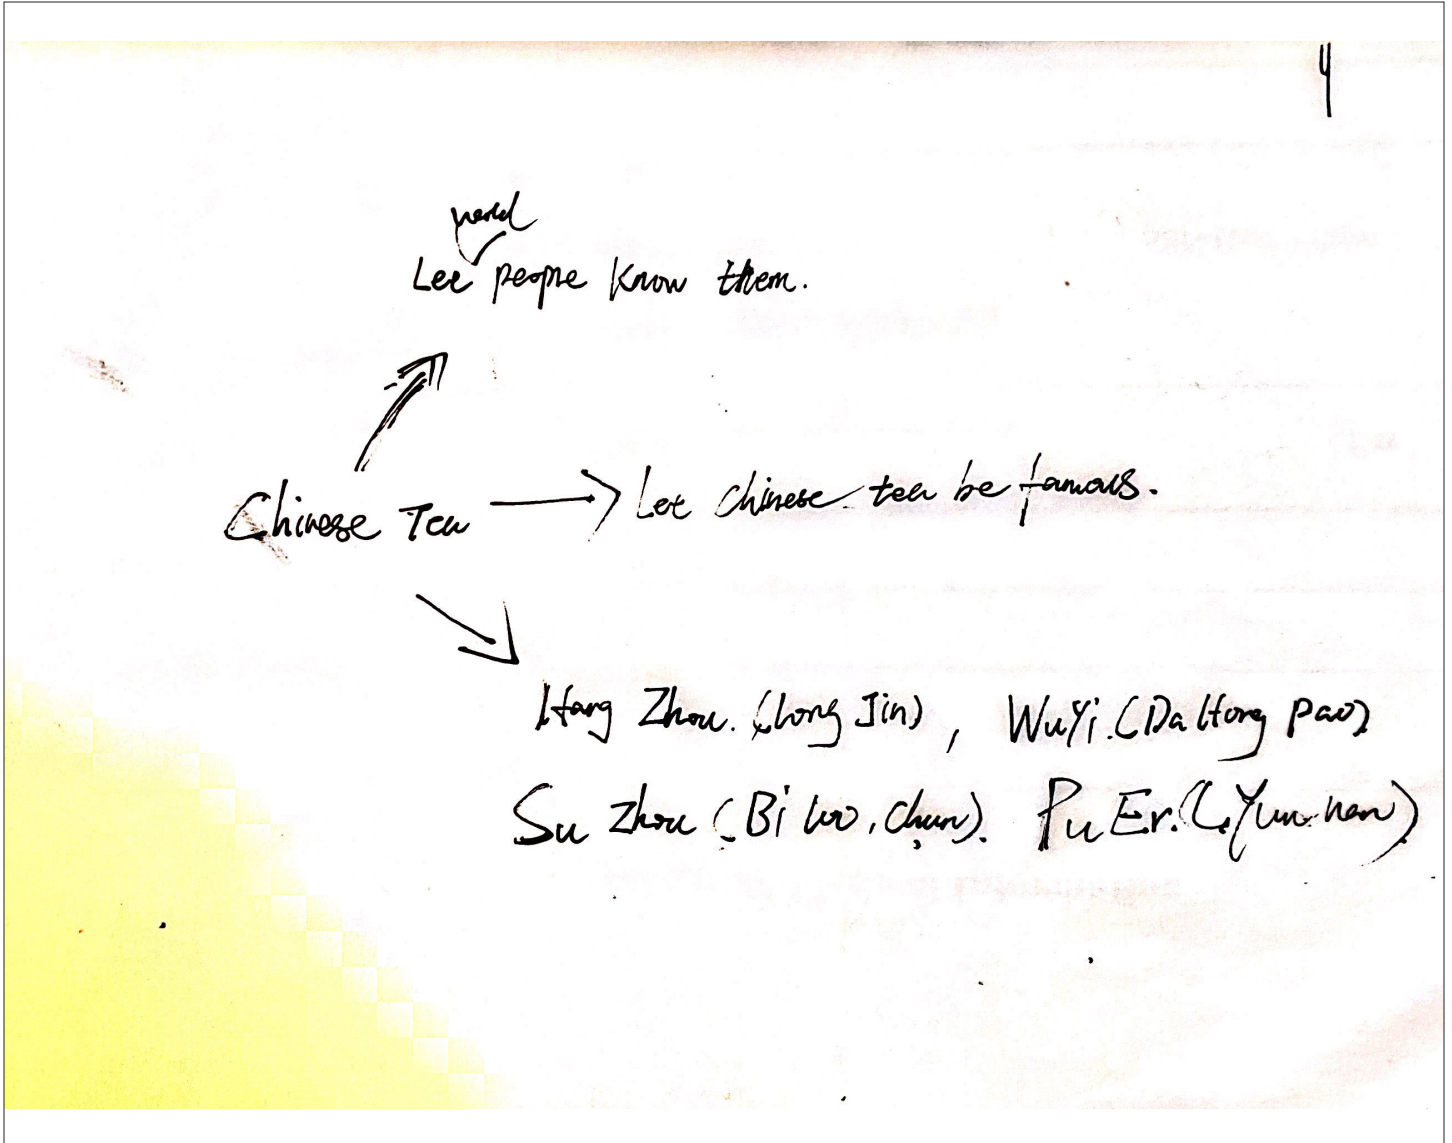 4
world
Let people know them.
Chinese Tea
Let chinese tea be famous.
Hang Zhou. (Long Jin), WuYi. (Da Hong Pao)
Su Zhou (Bi luo, chun). Pu Er. (Yun nan)